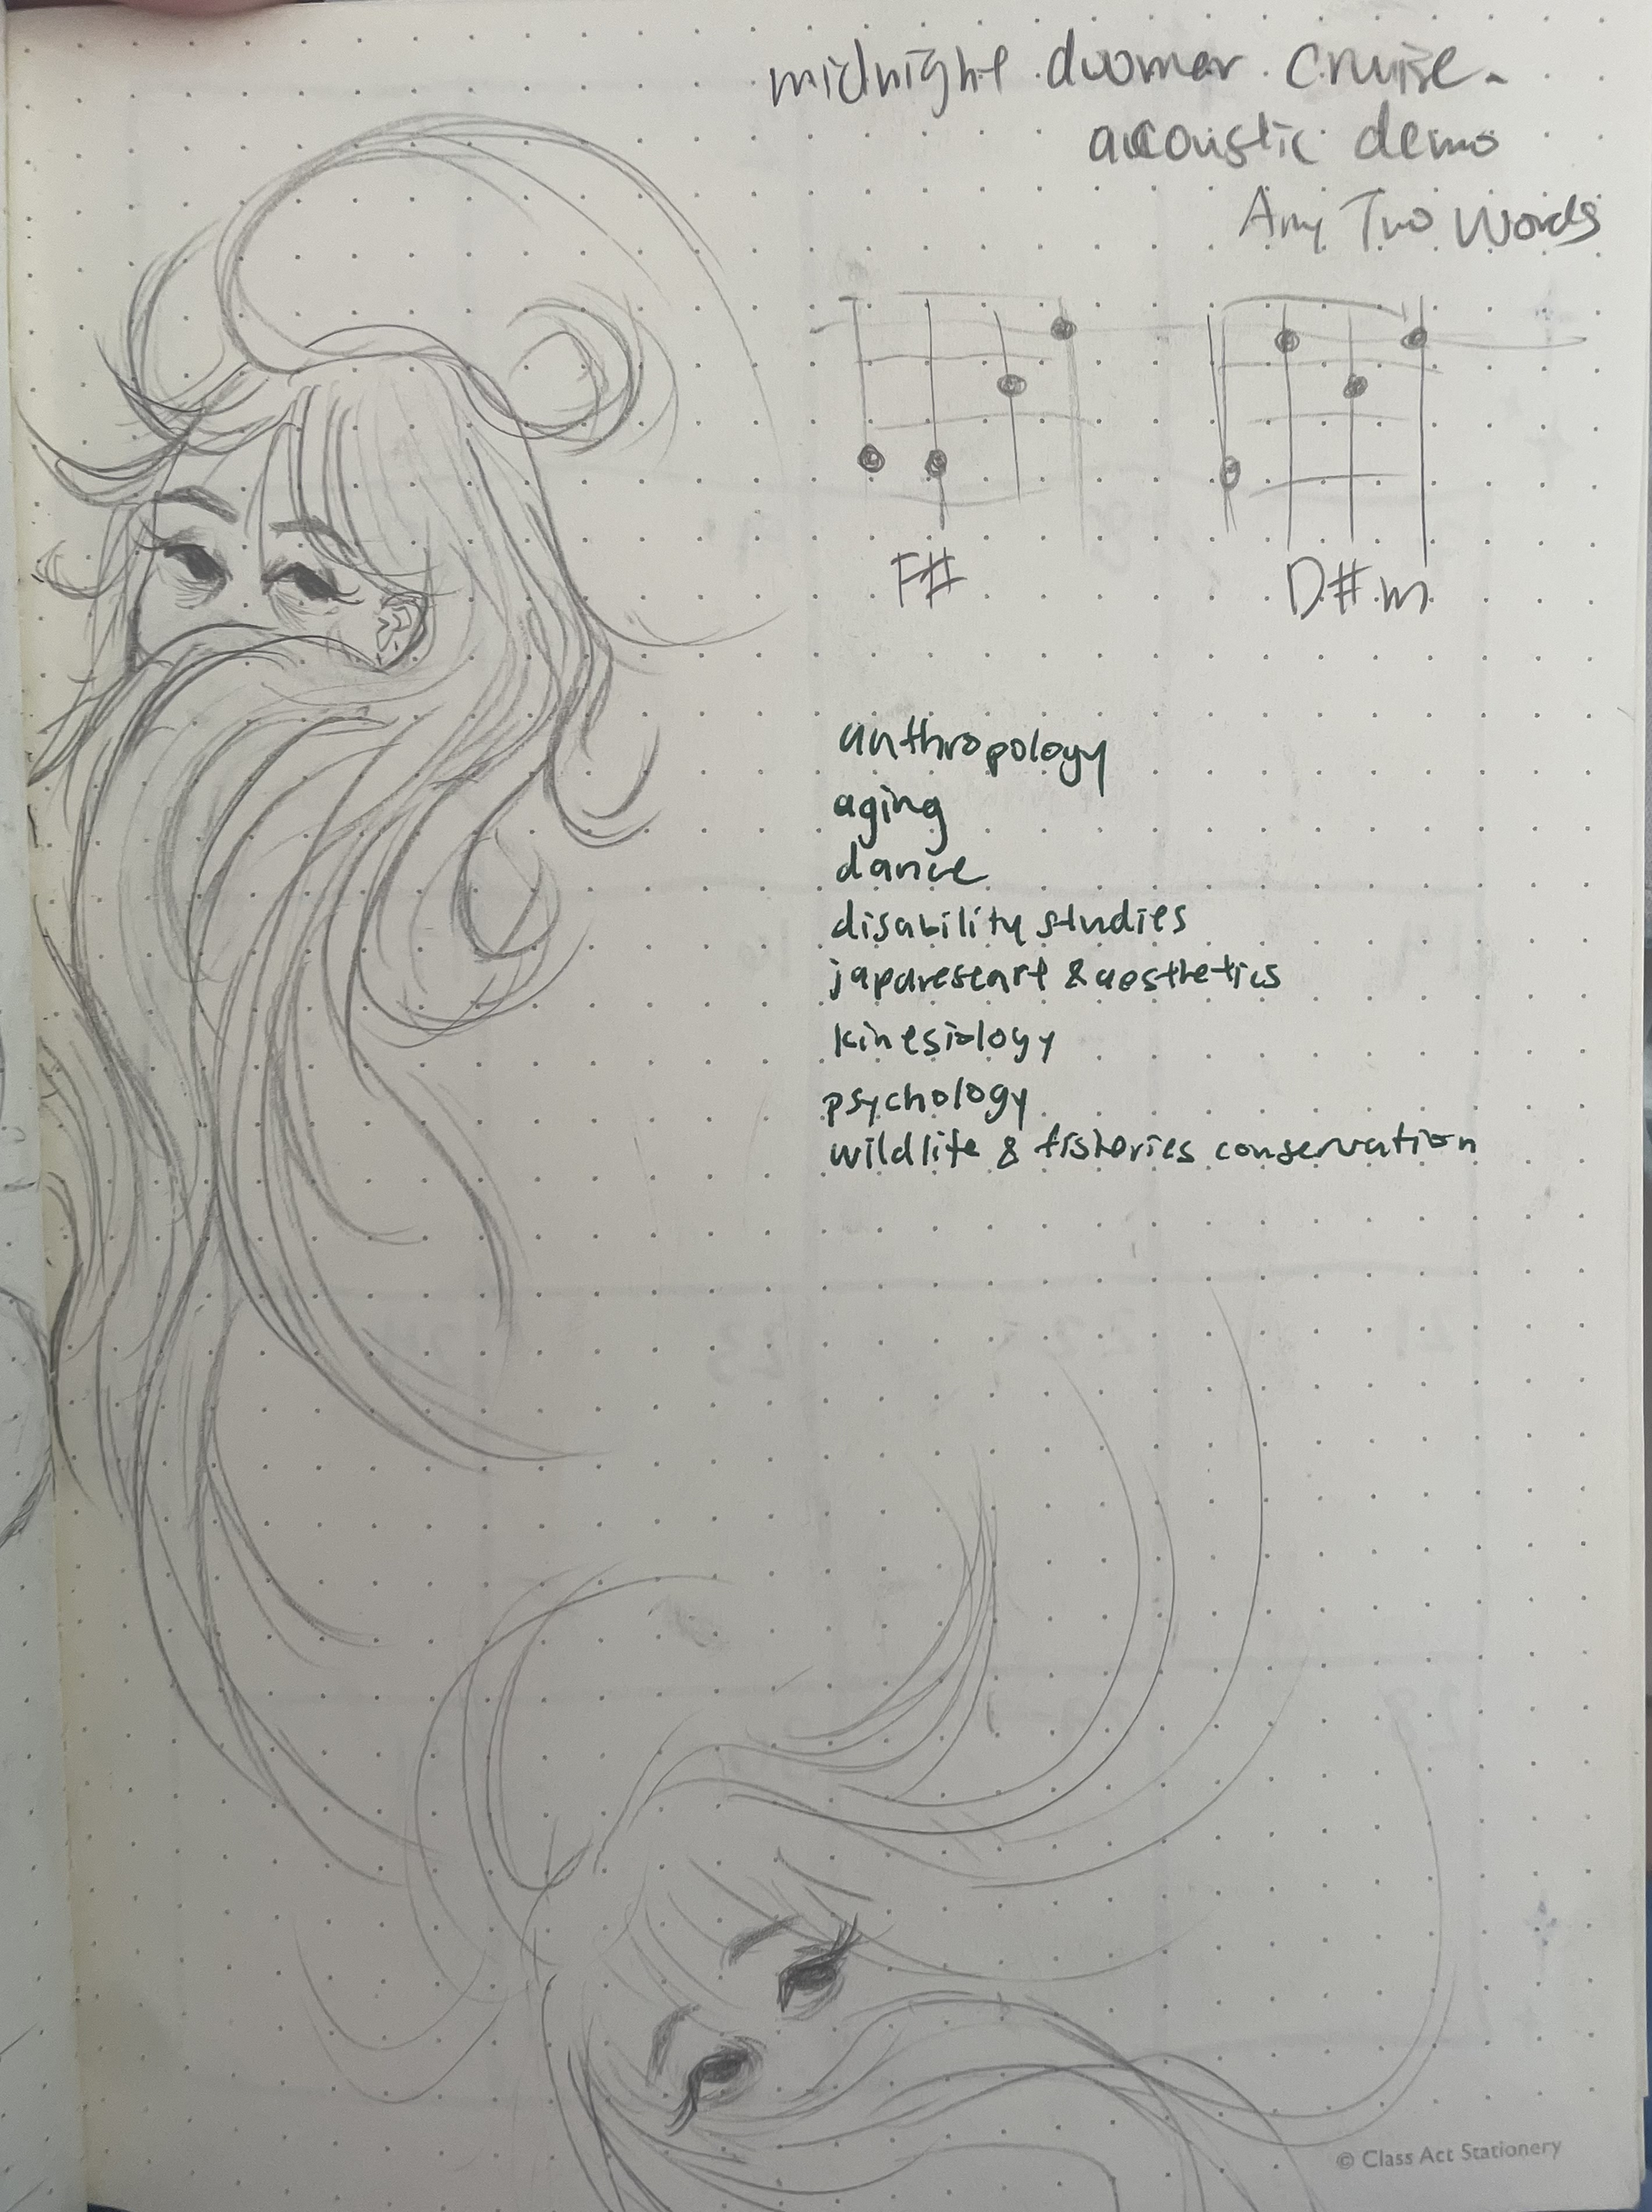 midnight doomer cruise -
acoustic demo
Any Two Words
F#
D#m
anthropology
aging
dance
disability studies
japanese art & aesthetics
kinesiology
psychology
wildlife & fisheries conservation
© Class Act Stationery